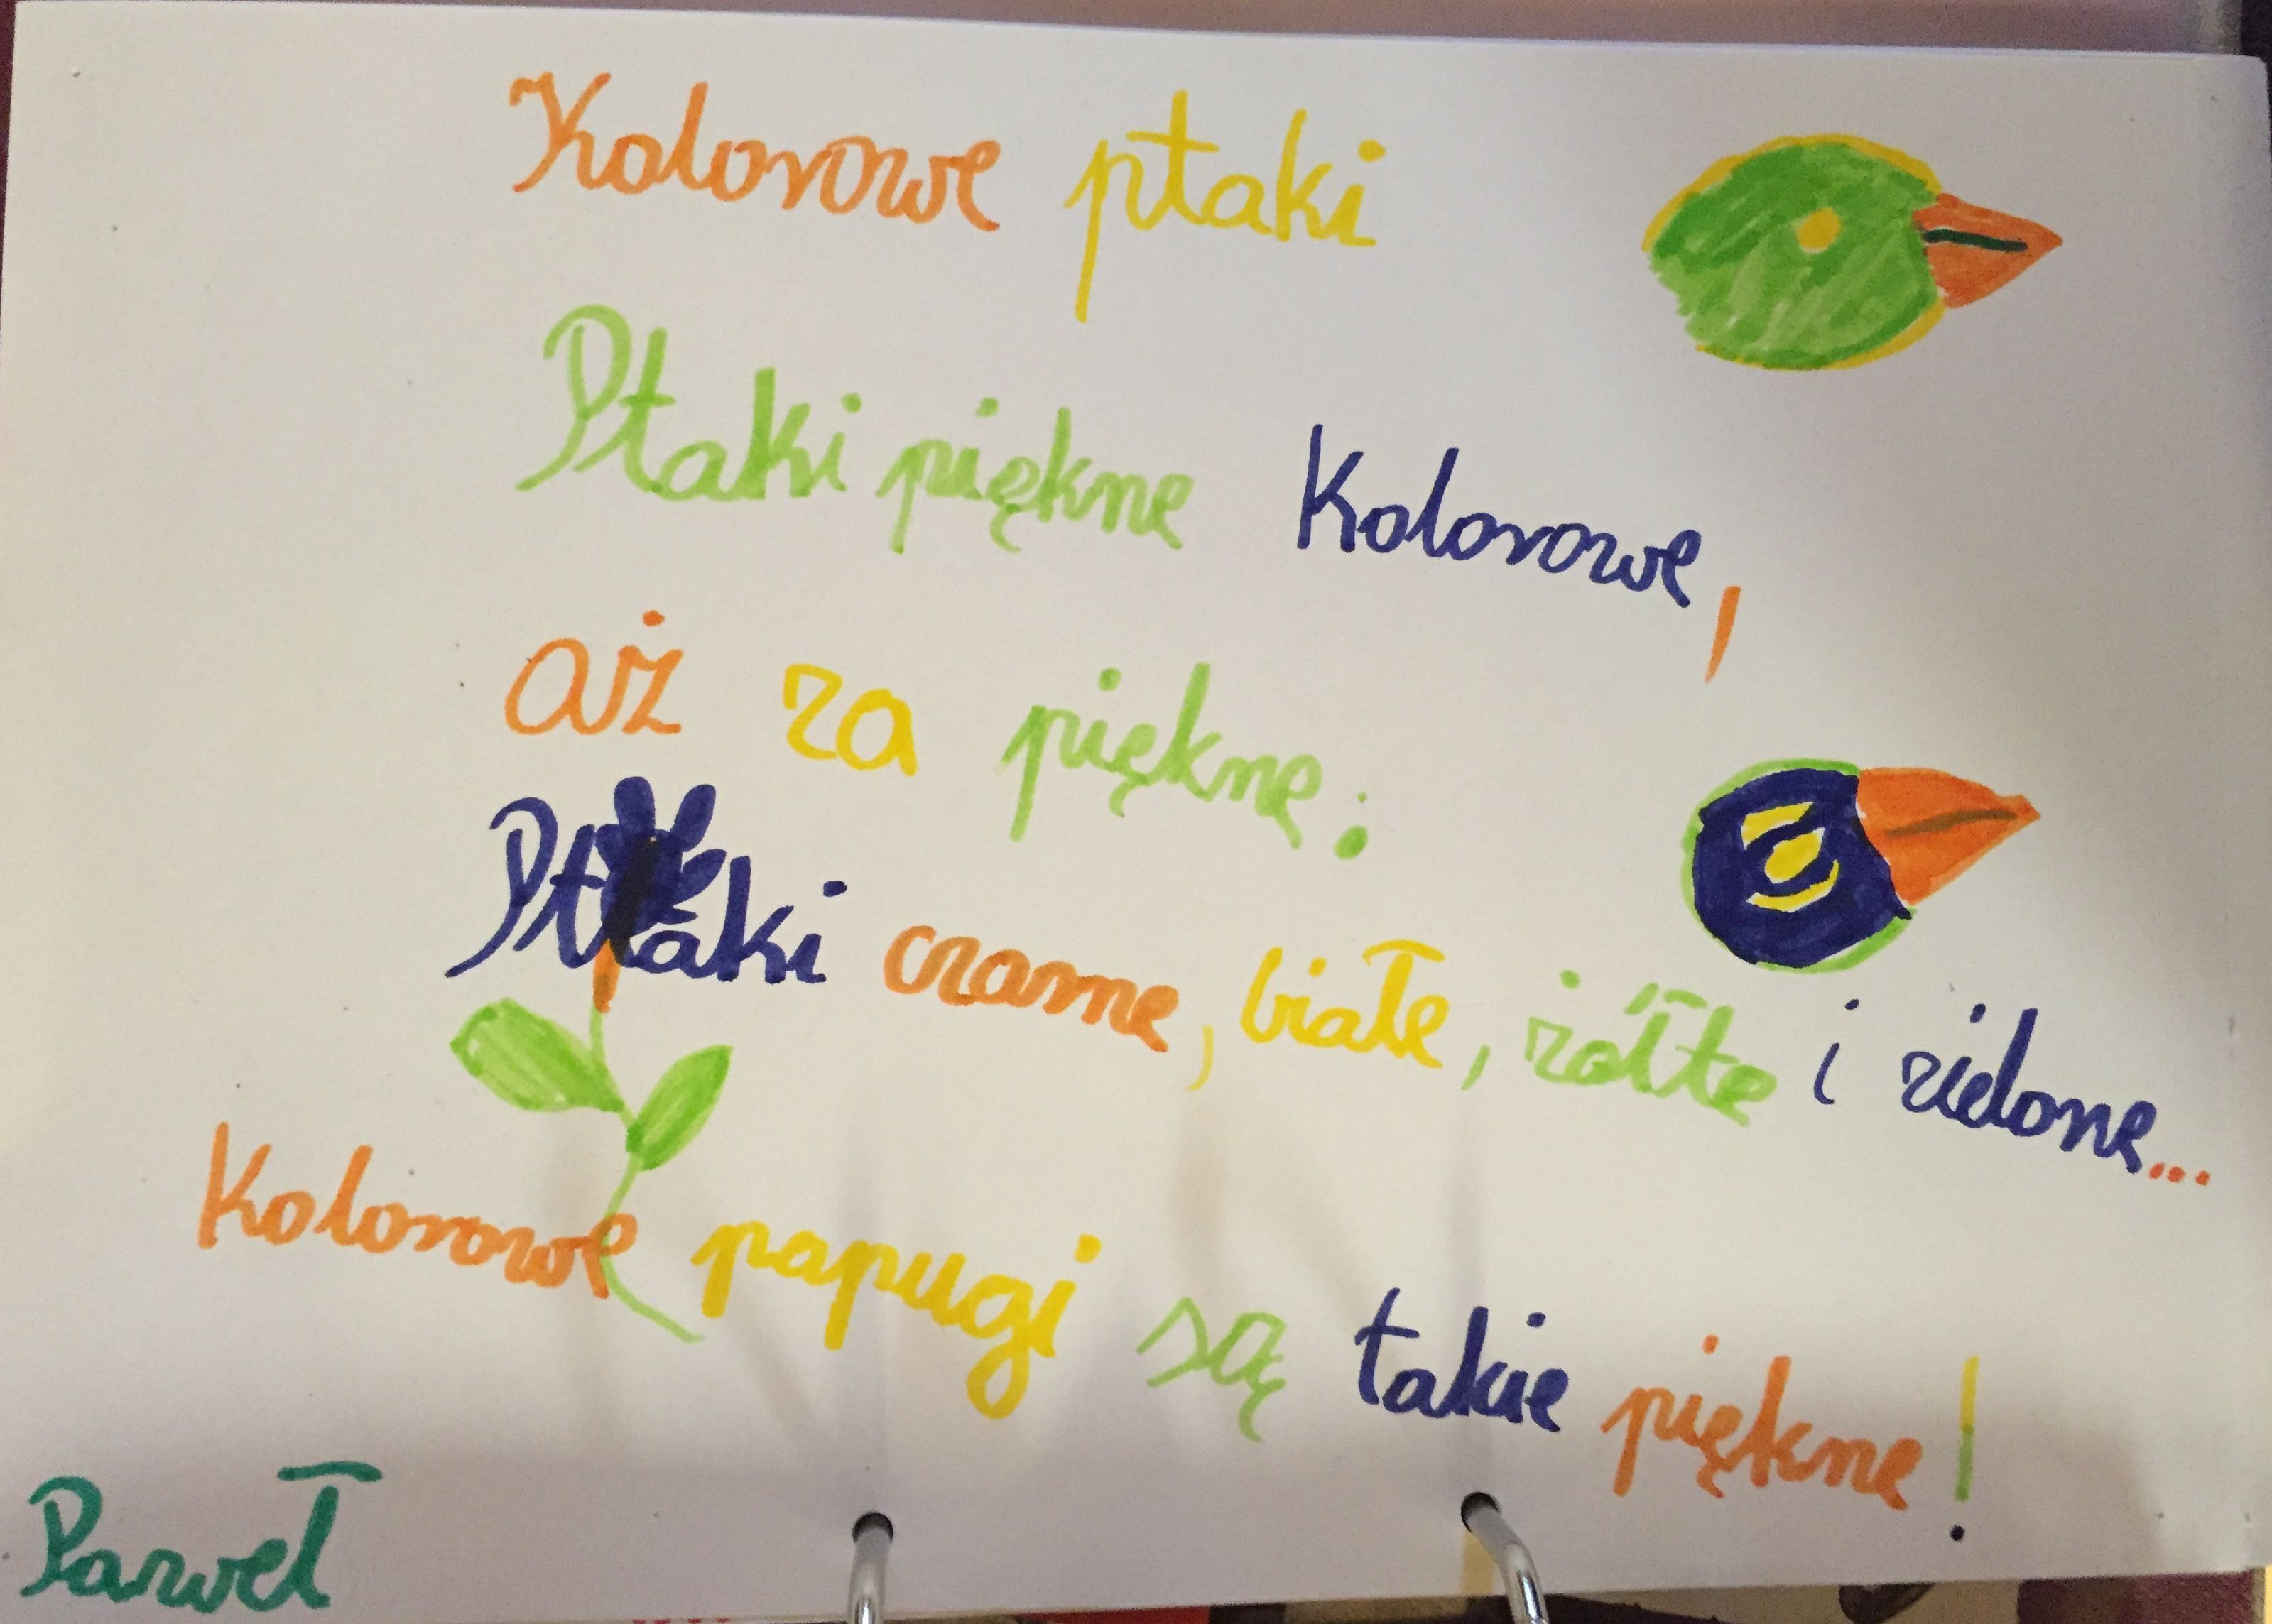 Kolorowe ptaki
Ptaki piękne Kolorowe,
aż za piękne:
Ptaki czarne, białe, żółte i zielone...
Kolorowe papugi są takie piękne!
Paweł